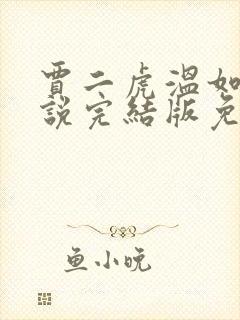 賈二虎溫如
說完結版免
魚小晚